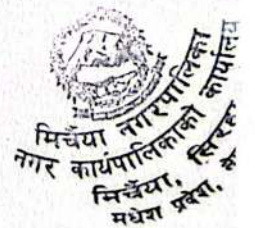 मिर्चैया नगरपालिका
नगर कार्यपालिकाको कार्यालय
मिर्चैया, सिरहा
मधेश प्रदेश,